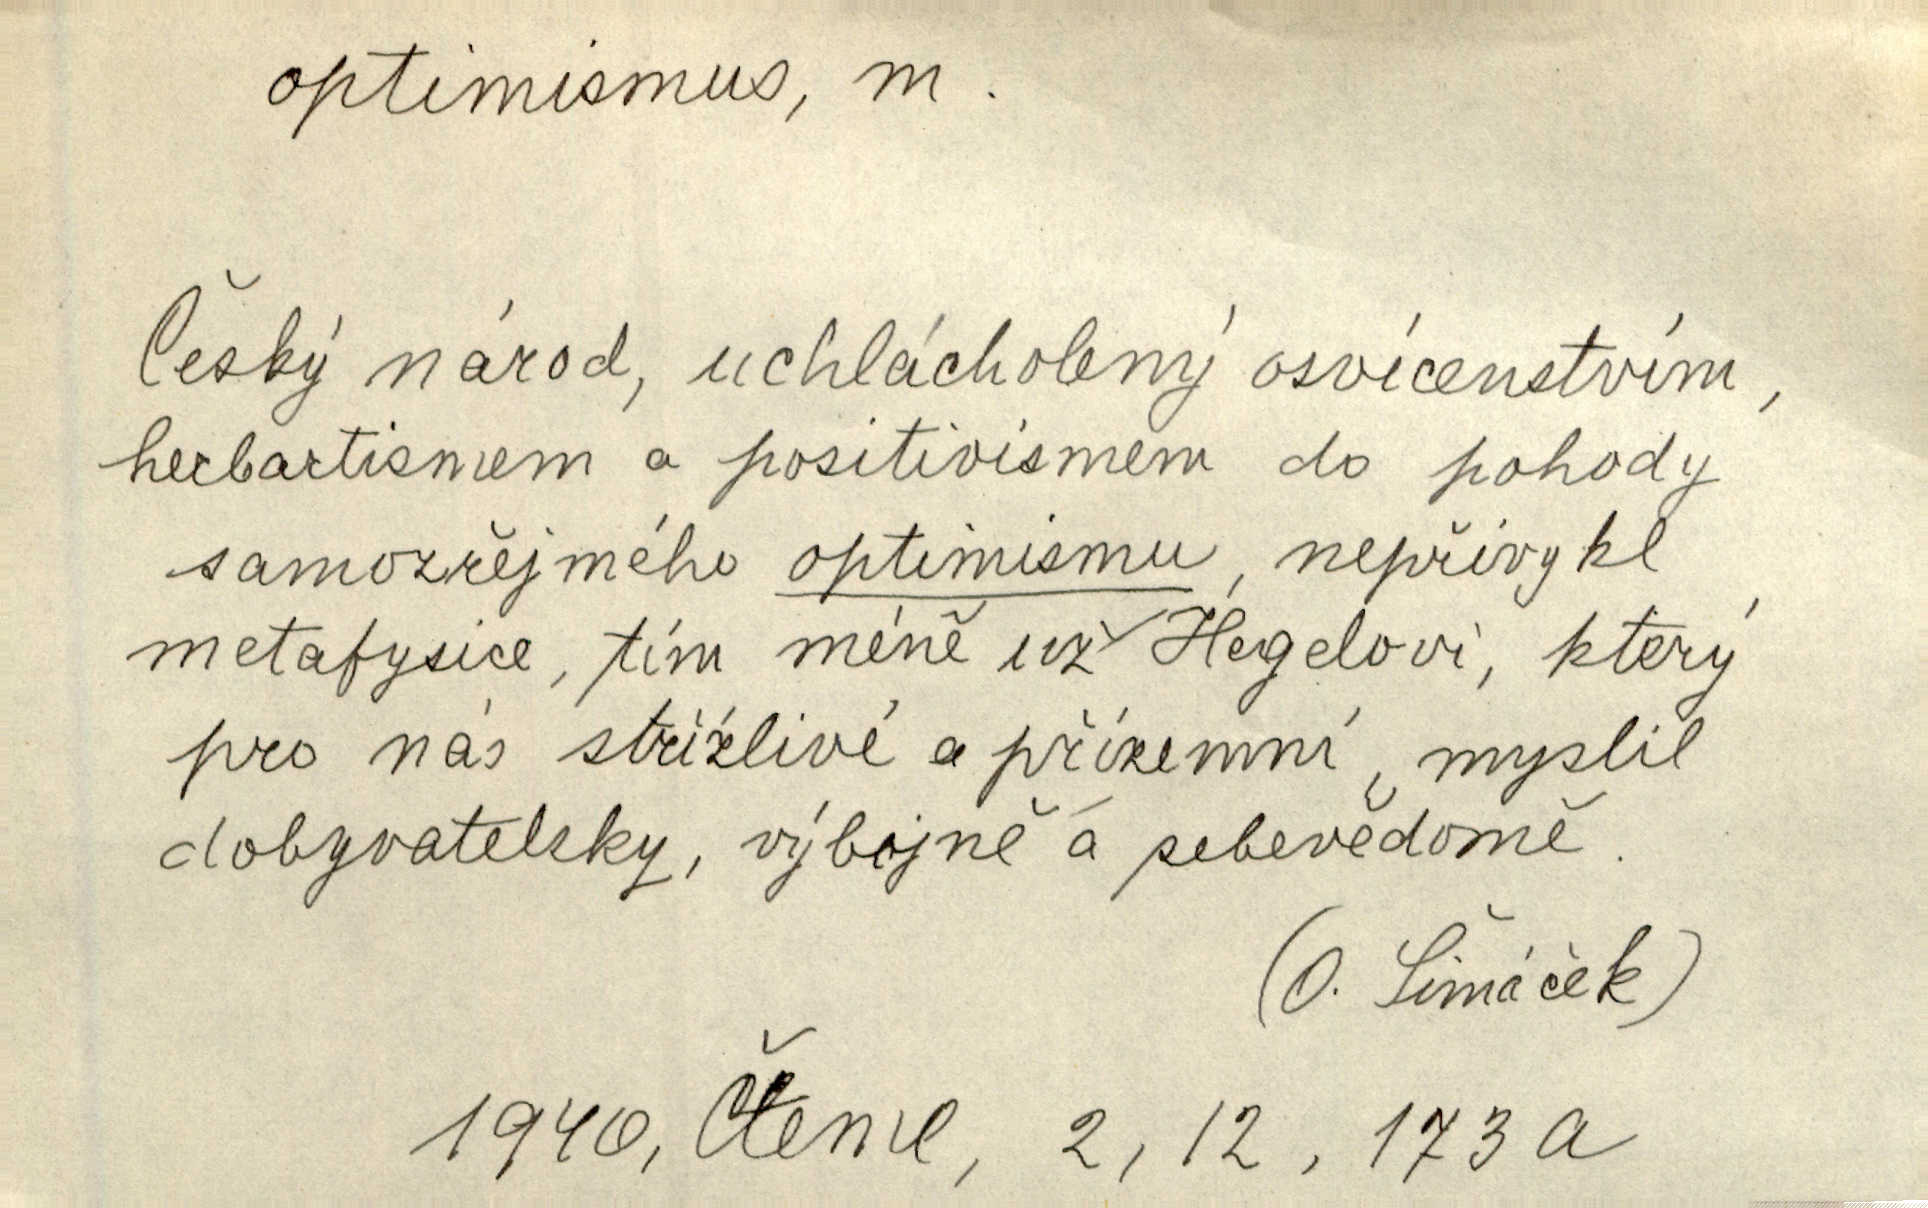 optimismus, m.
Český národ, uchlácholený osvícenstvím,
herbartismem a positivismem do pohody
samozřejmého optimismu, nepřivykl
metafysice, tím méně už Hegelovi, který
pro nás střízlivé a přízemní, myslil
dobyvatelsky, výbojně a sebevědomě.
(O. Šimáček)
1940, Čteme, 2, 12, 173a